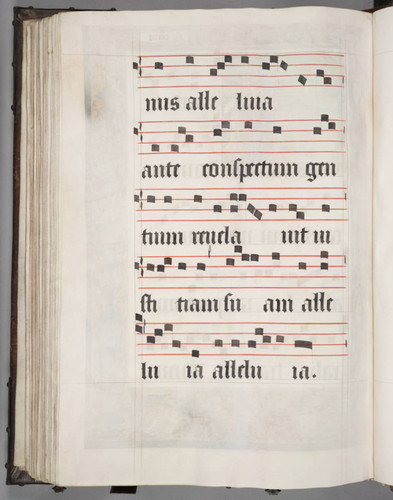 nus alle luia
ante conspectum gen
tium reuela uit iu
sti tiam su am alle
lu ia allelu ia.